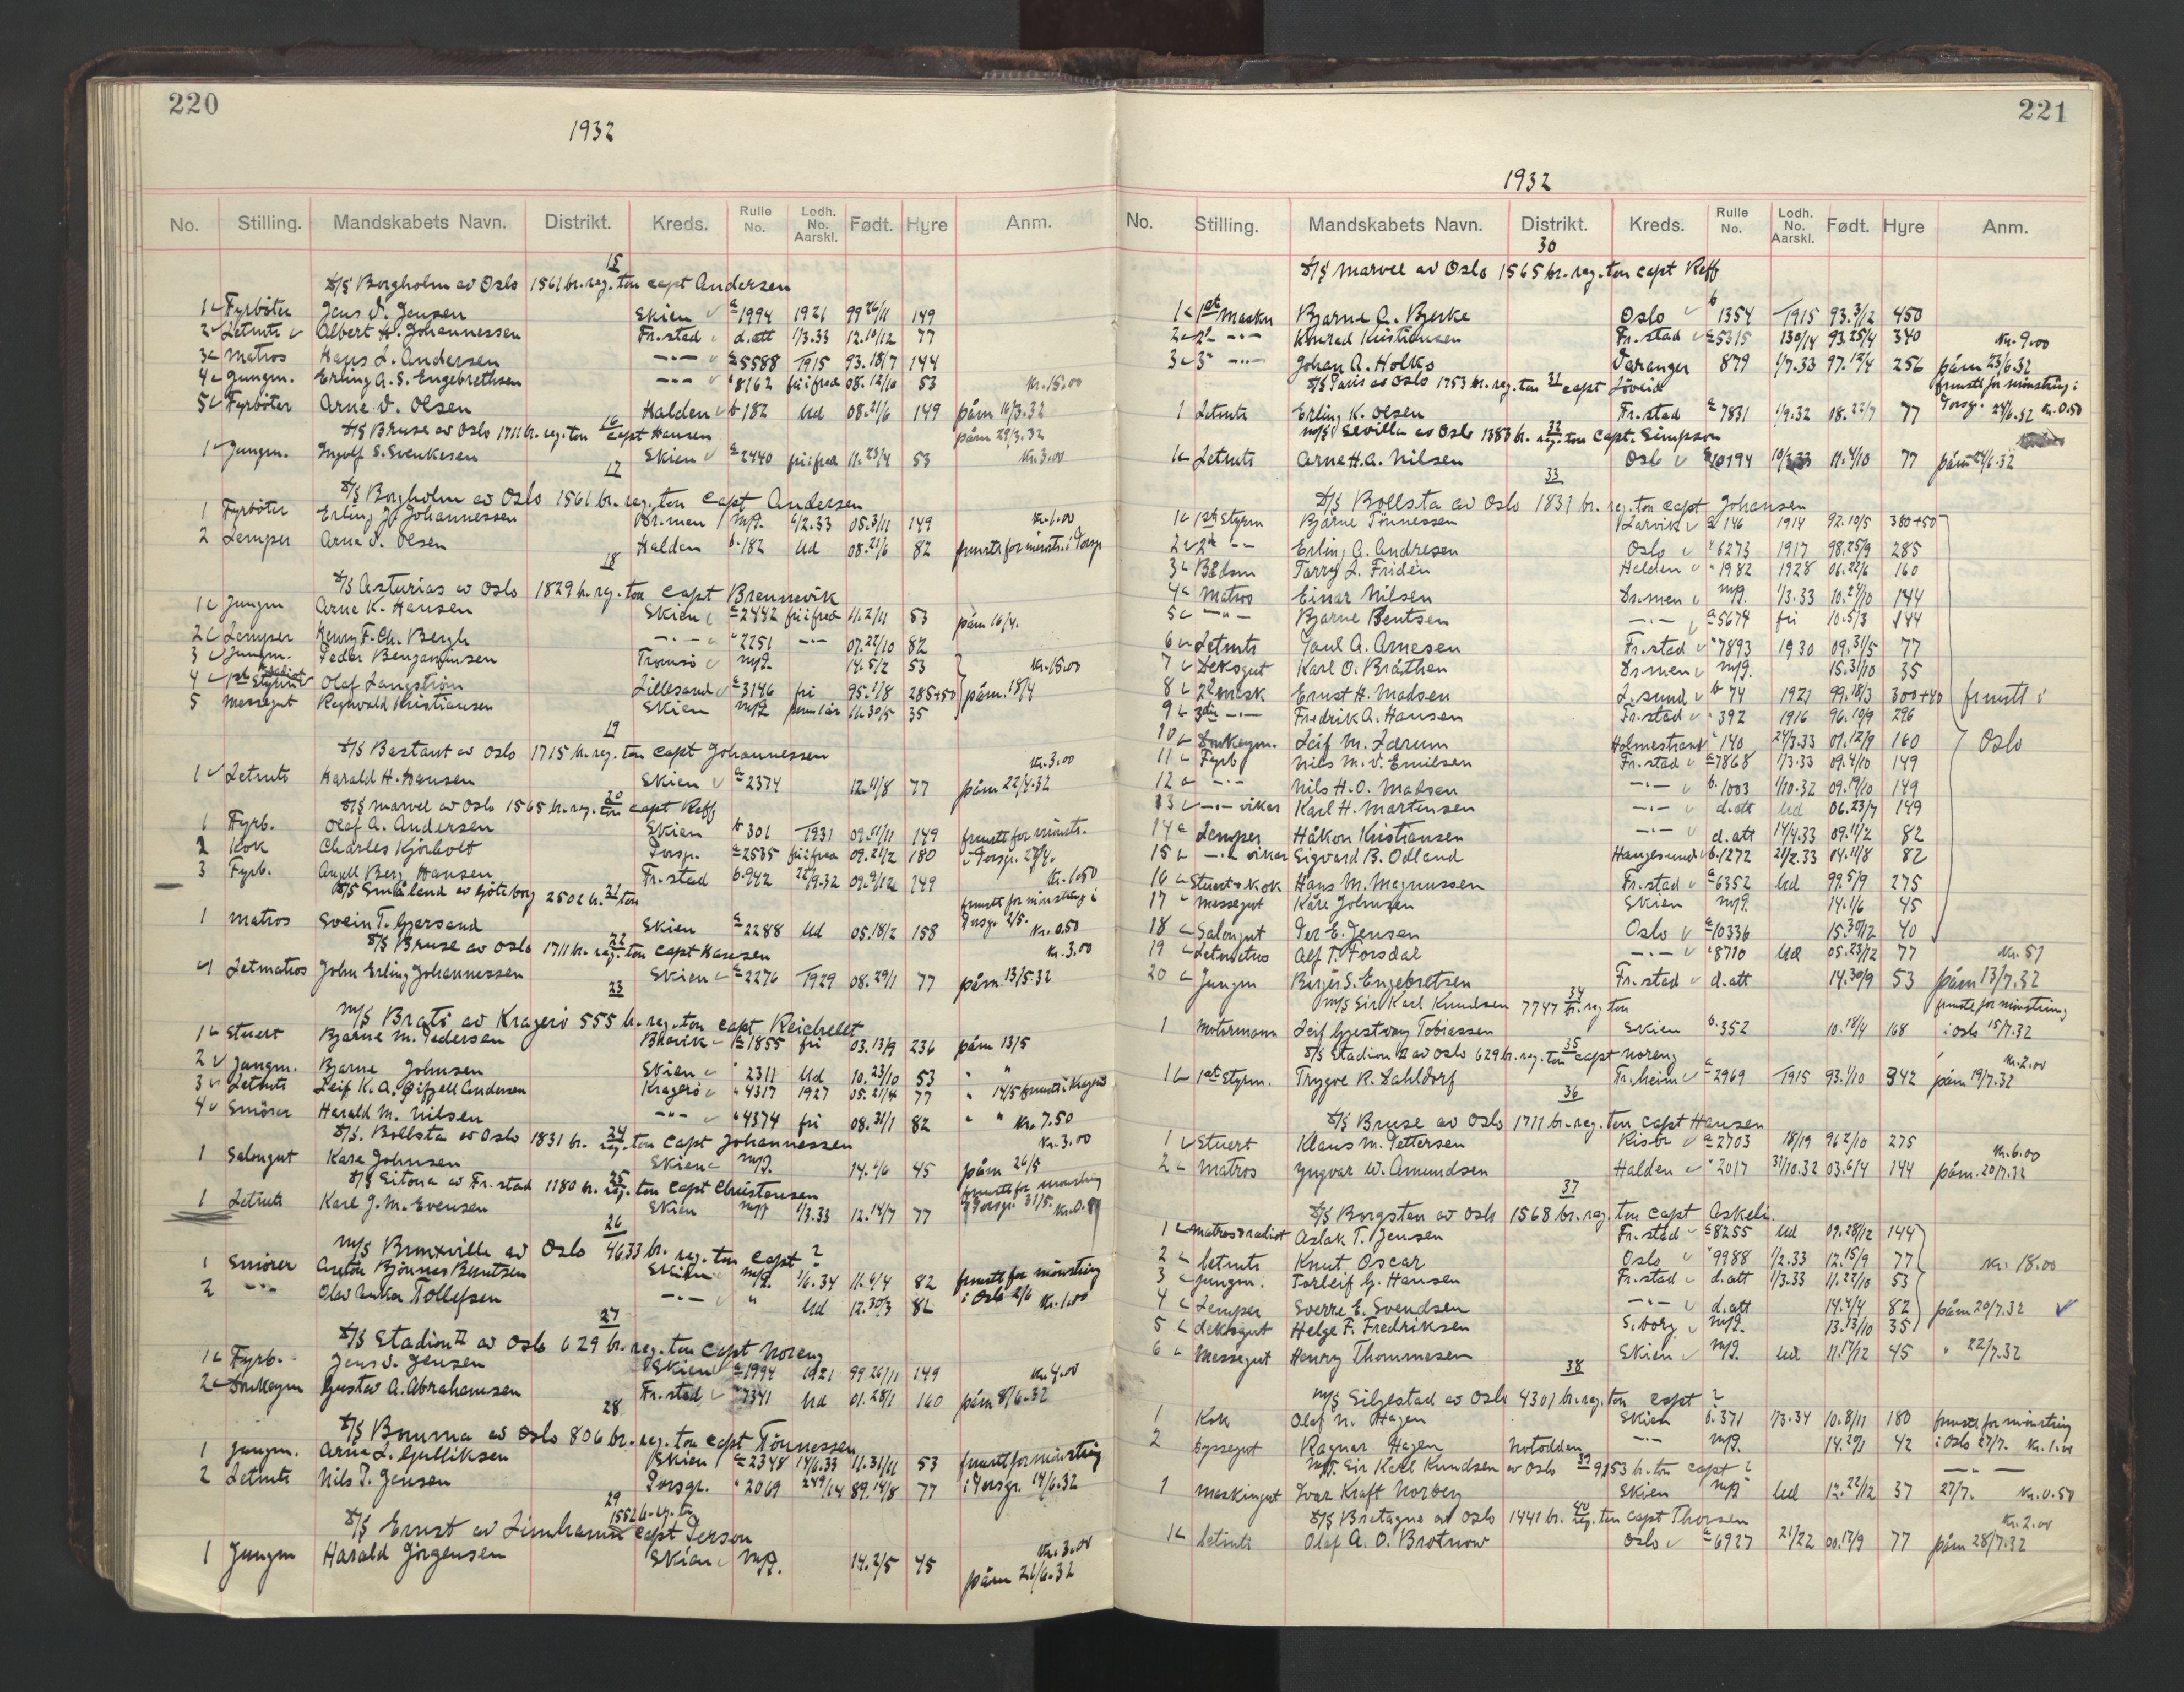 220
1932
No. Stilling. Mandskabets Navn. Distrikt. Kreds. Rulle No. Lodh. No. Aarskl. Født. Hyre Anm.
15
D/S Borgholm av Oslo 1561 br. reg. ton capt Andersen
1 Fyrböter Jens V. Jensen Skien a 1994 1921 99 26/11 149
2 Letmts Albert H. Johannessen Fr.stad d.att 1/3.33 12.10/12 77
3 Matros Hans L. Andersen —"— a 5588 1915 93.18/7 144
4 Jungm. Erling A. S. Engebrethsen —"— " 8162 fri i fred 08.12/10 53 Kr. 15.00
5 Fyrböter Arne V. Olsen Halden b 182 Ud 08.21/6 149 påm 16/3.32
16
D/S Bruse av Oslo 1711 br. reg. ton capt Hansen påm 29/3.32
1 Jungm. Ingolf S. Svenkesen Skien a 2440 fri i fred 11.23/4 53 Kr. 3.00
17
D/S Borgholm av Oslo 1561 br. reg. ton capt Andersen
1 Fyrböter Erling J. Johannessen Dr.men mg. 6/2.33 05.3/11 149 Kr. 1.00
2 Lemper Arne V. Olsen Halden b. 182 Ud 08.21/6 82 frmtt for mönstr. i Porsgr
18
D/S Asturias av Oslo 1829 br. reg. ton capt Brennevik
1 Jungm Arne K. Hansen Skien a 2442 fri i fred 11.2/11 53 påm 16/4.
2 Lemper Henry F. Ch. Bergh —"— " 2251 —"— 07.22/10 82
3 Jungm. Peder Benjaminsen Tromsö mg. 14.5/2 53 Kr. 15.00
4 1ste Styrm Radiot Olaf Langström Lillesand a 3146 fri 95.1/8 285+50 påm. 18/4
5 Messegut Raghvald Kristiansen Skien mg 16.30/5 35
19
D/S Bastant av Oslo 1715 br. reg. ton capt Johannessen
1 Letmts Harald H. Hansen Skien a 2374 12.11/8 77 Kr. 3.00 påm 22/4.32
20
D/S Marvel av Oslo 1565 br. reg. ton capt Reff
1 Fyrb. Olaf A. Andersen Skien b 301 1931 09.11/11 149 frmtt for mönstr.
2 Kok Charles Kjörholt Porsgr. a 2535 fri i fred 09.21/2 180 i Porsgr. 27/4.
3 Fyrb. Angell Berg Hansen Fr.stad b. 942 22/9.32 09.9/12 149 Kr. 1.50
21
D/S Småland av Göteborg 2502 br. ton frmtt for mönstring i
1 Matros Svein T. Gjersand Skien a 2288 Ud 05.18/2 158 Porsgr. 2/5. Kr. 0.50
22
D/S Bruse av Oslo 1711 br. reg. ton capt Hansen Kr. 3.00
1 Letmatros John Erling Johannessen Skien a 2276 1929 08.29/1 77 påm. 13/5.32
23
M/S Brati av Kragerö 555 br. reg. ton capt Reichelet
1 Stuert Bjarne M. Pedersen Brevik a 1855 fri 03.13/9 236 påm 13/5
2 Jungm. Bjarne Johnsen Skien " 2311 Ud 10.23/10 53 " "
3 Letmts Leif K. A. Gifzell Andersen Kragerö " 4317 1927 05.21/4 77 " 14/5 frmtt i Kragerö
4 Smörer Harald M. Nilsen —"— " 4374 fri 08.31/1 82 " " Kr. 7.50
24
D/S. Bollsta av Oslo 1831 br. reg. ton capt Johannessen Kr. 3.00
1 Salongut Kåre Johnsen Skien mg. 14.1/6 45 påm 26/5
25
D/S Sitona av Fr.stad 1180 br. reg. ton capt Christensen frmtt for mönstring
1 Letmts Karl J. M. Evensen Skien mg 1/3.33 12.14/7 77 i Porsgr. 31/5.
26
M/S Bronxville av Oslo 4633 br. reg. ton capt ?
1 Smörer Anton Bjönnes Berntsen Skien mg. 1/6.34 11.6/4 82 frmtt for mönstring
2 —"— Olav Anker Tollefsen —"— " Ud 12.30/3 82 i Oslo 2/6 Kr. 1.00
27
D/S Stadion II av Oslo 629 br. reg. ton capt Noreng
1 Fyrb. Jens V. Jensen Skien a 1994 1921 99 26/11 149 Kr. 4.00
2 Donkeym Gustav A. Abrahamsen Fr.stad " 7341 Ud 01.28/1 160 påm 8/6.32
28
D/S Bomma av Oslo 806 br. reg. ton capt Tönnessen
1 Jungm. Arne L. Gulliksen Skien a 2348 14/6.33 11.31/11 53 frmtt for mönstring
2 Letmts Nils T. Jensen Porsgr. " 2069 249/14 89.14/8 77 i Porsgr. 14/6.32
29
D/S Ernst av Limhamn 1552 br. reg. ton capt Person
1 Jungm Harald Jörgensen Skien mg. 14.2/5 45 Kr. 3.00 påm 21/6.32
221
1932
No. Stilling. Mandskabets Navn. Distrikt. Kreds. Rulle No. Lodh. No. Aarskl. Født. Hyre Anm.
30
D/S Marvel av Oslo 1565 br. reg. ton capt Reff
1 1ste Maskn Bjarne A. Bjerke Oslo b 1354 1915 93.3/12 450
2 2n —"— Konrad Kristiansen Fr.stad a 5315 130/14 93.25/4 340 Kr. 9.00
3 3n —"— Johan A. Holks Varanger 879 1/7.33 97.12/4 256 påm 23/6.32
31
D/S Paris av Oslo 1753 br. reg. ton capt Löveid frmtt for mönstring i
1 Letmts Erling K. Olsen Fr.stad a 7831 1/9.32 08.22/7 77 Porsgr. 24/6.32 Kr. 0.50
32
M/S Sevilla av Oslo 1383 br. reg. ton capt. Simpson
1 Letmts Arne H. A. Nilsen Oslo a 10194 11.4/10 77 påm 24/6.32
33
D/S Bollsta av Oslo 1831 br. reg. ton capt Johansen
1 1ste Styrm Bjarne Tönnessen Larvik a 146 1914 92.10/5 380+50
2 2n —"— Erling A. Andresen Oslo " 6273 1917 98.25/9 285
3 Bådsm Tarry L. Fridèn Halden " 1982 1928 06.22/6 160
4 Matros Einar Nilsen Dr.men mg. 1/3.33 10.24/10 144
5 —"— Bjarne Bentsen —"— a 5674 fri 10.5/3 144
6 Letmts Paul A. Arnesen Fr.stad " 7893 1930 09.31/5 77
7 Deksgut Karl O. Bråthen Dr.men mg. 15.31/10 35
8 2n Mask Ernst H. Madsen L.sund b 74 1921 99.18/3 300+40 frmtt i
9 3die —"— Fredrik A. Hansen Fr.stad " 392 1916 96.10/9 296
10 Donkeym. Leif M. Lærum Holmestrand " 140 24/3.33 07.12/9 160 Oslo
11 Fyrb Nils M. V. Emilsen Fr.stad a 7868 1/3.33 09.4/10 149
12 —"— Nils H. O. Madsen —"— b. 1003 1/10.32 09.19/10 149
13 —"— vikar Karl H. Martinsen —"— d.att Ud 06.23/7 149
14 Lemper Håkon Kristiansen —"— d.att 14/4.33 09.11/2 82
15 —"— vikar Sigvard B. Odland Haugesund b. 1272 21/2.33 04.11/8 82
16 Stuert+Kok Hans M. Magnussen Fr.stad a 6352 Ud 99.5/9 275
17 Messegut Kåre Johnsen Skien mg. 14.1/6 45
18 Salongut Per E. Jensen Oslo a 10336 15.30/12 40
19 Letmatros Alf T. Forsdal —"— " 8710 Ud 05.23/12 77 Kr. 57
20 Jungm Birger S. Engebretsen Fr.stad d.att 14.30/9 53 påm 13/7.32
34
M/S Sir Karl Knudsen 7747 br. reg ton frmtt for mönstring
1 Motormann Leif Gjestvang Tobiassen Skien b. 352 10.18/4 168 i Oslo 15/7.32
35
D/S Stadion II av Oslo 629 br. reg. ton capt Noreng Kr. 2.00
1 1ste Styrm. Trygve R. Dahldorf Tr.heim a 2969 1915 93.1/10 342 påm 19/7.32
36
D/S Bruse av Oslo 1711 br. reg. ton capt Hansen
1 Stuert Klaus M. Pettersen Risör a 2703 18/19 96 2/10 275 Kr. 6.00
2 Matros Yngvar W. Amundsen Halden " 2017 31/10.32 03.6/4 144 påm. 20/7.32
37
D/S Borgsten av Oslo 1568 br. reg. ton capt Askeli
1 Matros+radiot Aslak T. Jensen Fr.stad a 8255 Ud 09.28/12 144
2 Letmts Knut Oscar Oslo " 9988 1/2.33 12.15/9 77 Kr. 18.00
3 Jungm. Torleif G. Hansen Fr.stad d.att 1/3.33 11.22/10 53
4 Lemper Sverre E. Svendsen —"— d.att 14.4/4 82 påm 20/7.32
5 Deksgut Helge F. Fredriksen S.borg mg. 13.13/10 35
6 Messegut Henry Thommesen Skien mg. Ud 11.17/12 45 " 22/7.32
38
M/S Siljestad av Oslo 4301 br. reg. ton capt ?
1 Kok Olaf N. Hagen Skien b. 371 1/3.34 10.8/11 180 frmtt for mönstring
2 Byssegut Ragnar Hagen Notodden —"— mg. 14.29/1 42 i Oslo 27/7. Kr. 1.00
39
M/T. Sir Karl Knudsen av Oslo 9153 br. ton capt ? —"—
1 Maskingut Ivar Kraft Norberg Skien mg Ud 12.22/12 37 27/7. Kr. 0.50
40
D/S Bretagne av Oslo 1441 br. reg. ton capt Thorsen Kr. 2.00
1 Letmts Olaf A. O. Brotnow Oslo a 6927 21/22 00.17/9 77 påm 28/7.32